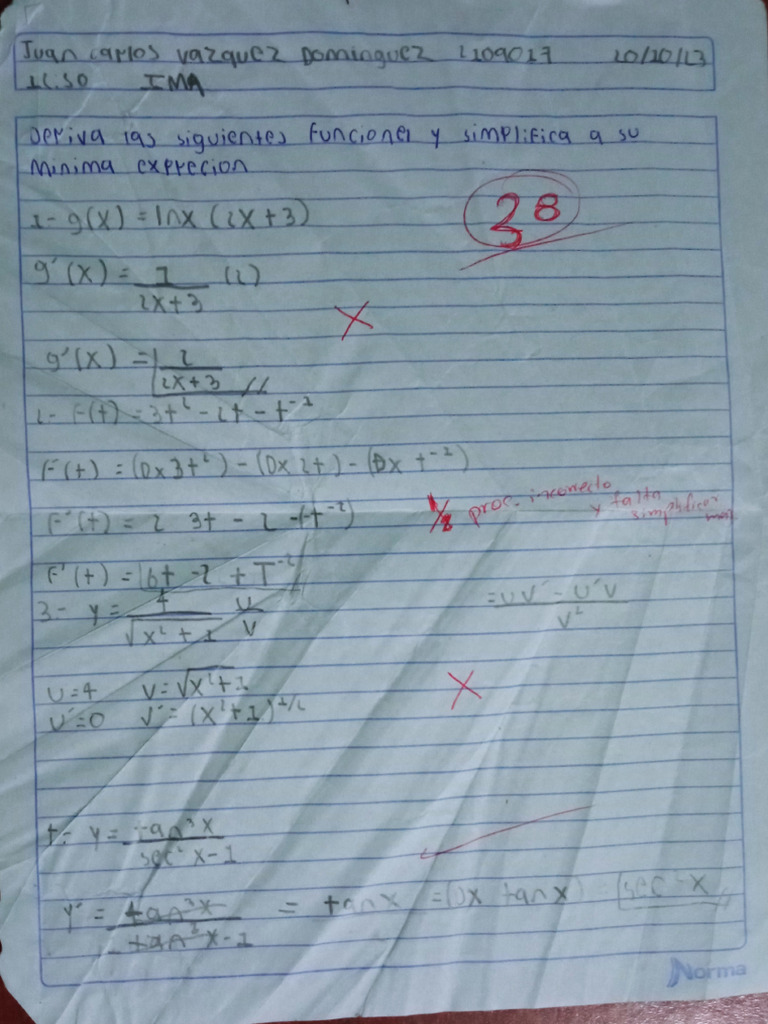 Juan carlos vazquez Dominguez 2209027 20/20/23
26.50 IMA
Deriva las siguientes funciones y simplifica a su
Minima exprecion
38
1- g(x) = lnx (2x+3)
g'(x) = 1/2x+3 (2)
g'(x) = 2/2x+3
2- F(t) = 3t² - 2t - t⁻¹
F'(t) = (Dx 3t²) - (Dx 2t) - (Dx t⁻¹)
F'(t) = 2 3t - 2 -(-t⁻²)
1/2 proc. incorrecto y falta simplificar
F'(t) = 6t - 2 + T⁻²
3.- y = 4/√x²+1 u/v
= uv' - u'v/v²
U=4 V=√x²+1
U'=0 V'= (x²+1)¹/²
4- y = tan³x/sec²x-1
y' = tan³x/tan²x-1 = tanx = (Dx tanx) sec²x
Norma